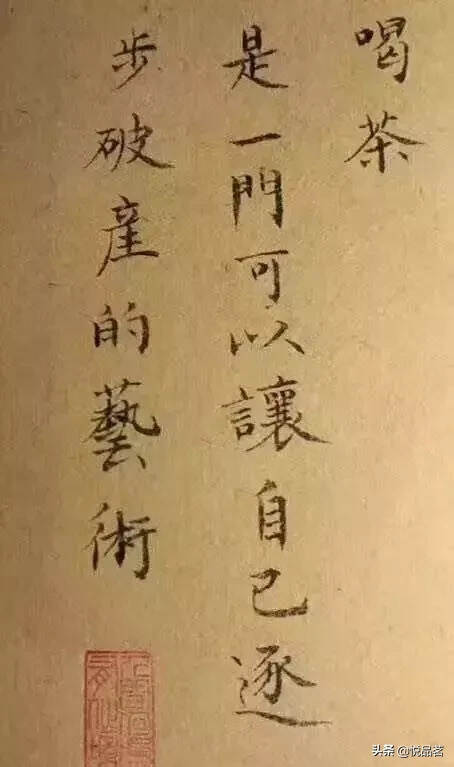 喝茶
是一門可以讓自己逐
步破產的藝術
头条 @悦品茗